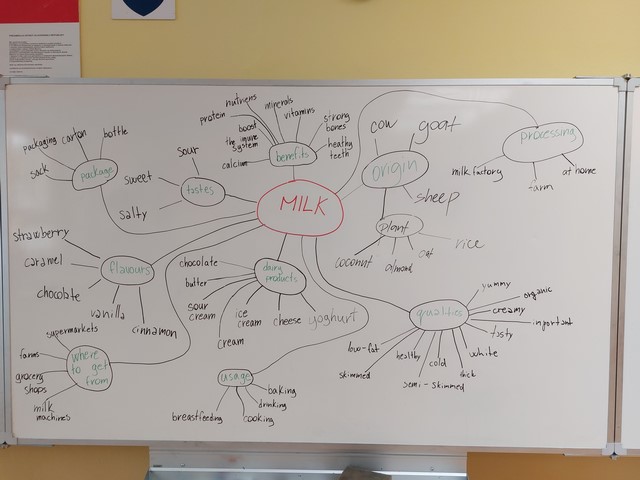 MILK
package
packaging
carton
bottle
sack
tastes
sour
sweet
salty
benefits
protein
nutriens
minerals
vitamins
strong
bones
heathy
teeth
boost
the imune
system
calcium
origin
cow
goat
sheep
plant
coconut
almond
oat
rice
processing
milk factory
farm
at home
flavours
strawberry
caramel
chocolate
vanilla
cinnamon
dairy
products
chocolate
butter
sour
cream
cream
ice
cream
cheese
yoghurt
qualities
yummy
organic
creamy
important
tasty
white
thick
cold
semi-skimmed
healthy
skimmed
low-fat
where
to get
from
supermarkets
farms
grocery
shops
milk
machines
usage
baking
drinking
cooking
breastfeeding